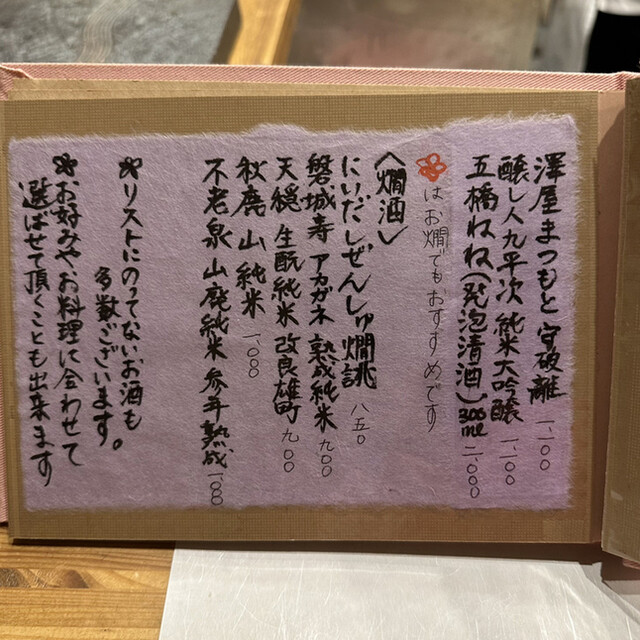 澤屋まつもと 守破離 一、一〇〇
醸し人九平次 純米大吟醸 一、一〇〇
五橋ねね(発泡清酒)300ml 二、〇〇〇
はお燗でもおすすめです
〈燗酒〉
にいだしぜんしゅ燗誂 八五〇
磐城寿 アカガネ 熟成純米 九〇〇
天穏 生酛純米 改良雄町 九〇〇
秋鹿 山 純米 一、〇〇〇
不老泉 山廃純米 参年熟成 一、〇〇〇
リストにのってないお酒も
多数ございます。
お好みや、お料理に合わせて
選ばせて頂くことも出来ます